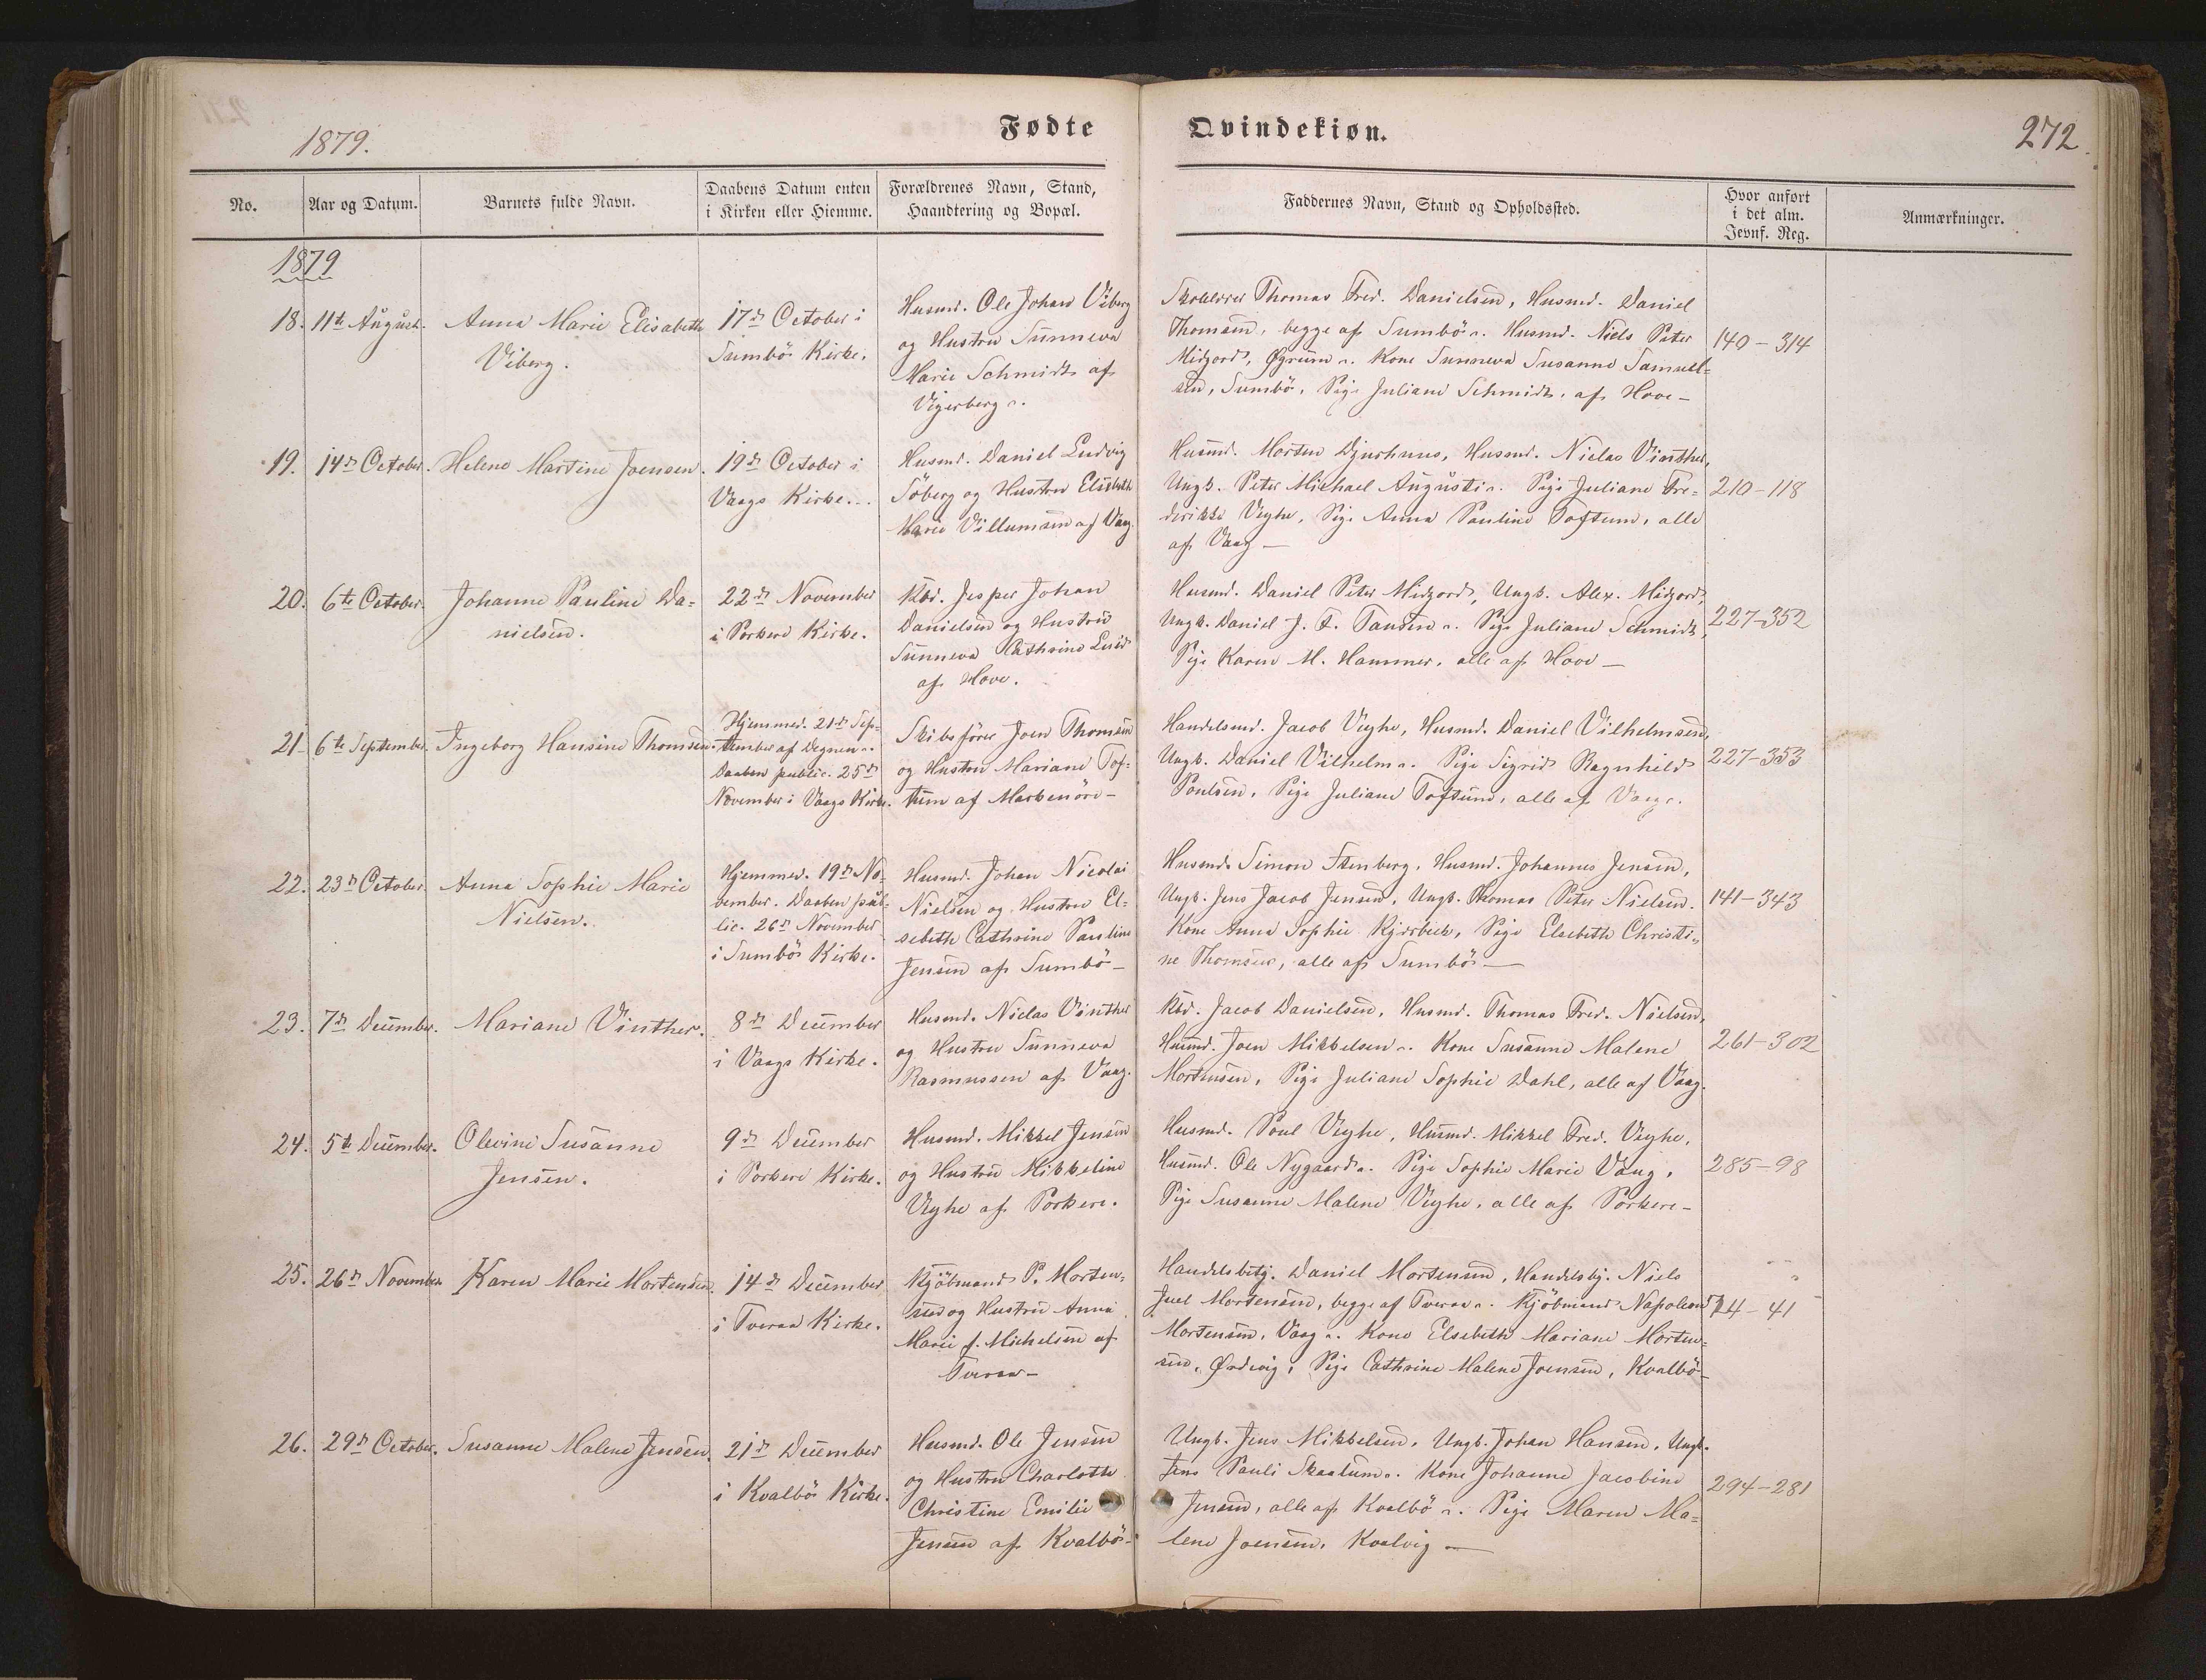 1879.
Fødte
Qvindekiøn.
272.
No.
Aar og Datum.
Barnets fulde Navn.
Daabens Datum enten
i Kirken eller Hiemme.
Forældrenes Navn, Stand,
Haandtering og Bopæl.
Faddernes Navn, Stand og Opholdssted.
Hvor anført
i det alm.
Jevnf. Reg.
Anmærkninger.
1879
18.
11te August.
Anna Marie Elisabeth
Viberg.
17de October i
Sumbö Kirke.
Husmd. Ole Johan Viberg
og Hustru Sunneva
Marie Schmidt af
Vigerberg.
Thomas Fred. Danielsen, Husmd. Daniel
Thomsen, begge af Sumbö. Husmd. Niels Peter
Midjord, Øgrum. Kone Sunneva Susanne Samuel=
sen, Sumbö, Pige Juliane Schmidt, af Hove -
140 - 314
19.
14de October.
Helene Martine Joensen.
19de October i
Vaags Kirke.
Husmd. Daniel Ludvig
Söberg og Hustru Elisbeth
Marie Villumsen af Vaag.
Husmd. Morten Djurhuus, Husmd. Niclas Vinther,
Ungk. Peter Michael Augusti. Pige Juliane Fre=
derikke Veyhe, Pige Anna Pauline Toftum, alle
af Vaag -
210 - 118
20.
6te October.
Johanne Pauline Da=
nielsen.
22de November
i Porkere Kirke.
Kbd. Jesper Johan
Danielsen og Hustru
Sunneva Cathrine
af Hove.
Husmd. Daniel Peter Midjord, Ungk. Alex. Midjord,
Ungk. Daniel J. F. Tausen. Pige Juliane Schmidt,
Pige Karen M. Hammer, alle af Hove -
227-352
21.
6te September.
Ingeborg Hansine Thomsen.
Hjemmed. 21de Sep=
tember af Degnen.
Daaben public. 25de
November i Vaags Kirke.
Skibsförer Joen Thomsen
og Hustru Mariane Tof=
tum af Markenöre -
Handelsmd. Jacob Veyhe, Husmd. Daniel Vilhelmsen,
Ungk. Daniel Vilhelm. Pige Sigrid Ragnhild
Poulsen, Pige Juliane Toftum, alle af Vaag.
227-353
22.
23de October.
Anna Sophie Marie
Nielsen.
Hjemmed. 19de No=
vember. Daaben pub=
lic. 26de November
i Sumbö Kirke.
Husmd. Johan Nicolai
Nielsen og Hustru El=
sebeth Cathrine Pauline
Jensen af Sumbö -
Husmd. Simon Stenberg, Husmd. Johannes Jensen,
Ungk. Jens Jacob Jensen, Ungk. Thomas Peter Nielsen.
Kone Anna Sophie Kjærbæk, Pige Elsebeth Christi=
ne Thomsen, alle af Sumbö -
141-343
23.
7de December.
Mariane Vinther.
8de December
i Vaags Kirke.
Husmd. Niclas Vinther
og Hustru Sunneva
Rasmussen af Vaag.
Kbd. Jacob Danielsen, Husmd. Thomas Fred. Nielsen,
Husmd. Joen Mikkelsen. Kone Susanne Malene
Mortensen, Pige Juliane Sophie Dahl, alle af Vaag.
261-302
24.
5te December.
Olevine Susanne
Jensen.
9de December
i Porkere Kirke.
Husmd. Mikkel Jensen
og Hustru Mikkeline
Veyhe af Porkere.
Husmd. Poul Veyhe, Husmd. Mikkel Fred. Veyhe,
Husmd. Ole Nygaard. Pige Sophie Marie Vaag,
Pige Susanne Malene Veyhe, alle af Porkere -
285-98
25.
26de November
Karen Marie Mortensen.
14de December
i Tveraa Kirke.
Kjöbmand P. Morten=
sen og Hustru Anna
Marie f. Michelsen af
Tveraa -
Handelsbetj. Daniel Mortensen, Handelsbj. Niels
Juel Mortensen, begge af Tveraa. Kjöbmand Napoleon
Mortensen, Vaag. Kone Elsebeth Mariane Morten=
sen, Ørdevig, Pige Cathrine Malene Joensen, Kvalbö -
14 - 41
26.
29de October.
Susanne Malene Jensen.
21de December
i Kvalbö Kirke.
Husmd. Ole Jensen
og Hustru Charlotte
Christine Emilie
Jensen af Kvalbö -
Ungk. Jens Mikkelsen, Ungk. Johan Hansen, Ungk.
Jens Pauli Skaalum. Kone Johanne Jacobine
Jensen, alle af Kvalbö. Pige Maren Ma=
lene Joensen, Kvalvig -
294-281